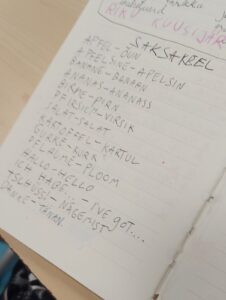 RIKU KUUSIJÄR
SAKSAKEEL
APFEL-ÕUN
APFELSINE-APELSIN
BANANE-BANAAN
ANANAS-ANANASS
BIRNE-PIRN
PFIRSICH-VIRSIK
SALAT-SALAT
KARTOFFEL-KARTUL
GURKE-KURK
PFLAUME-PLOOM
HALLO-HELLO
ICH HABE...-I'VE GOT...
TSCHÜSSI-NÄGEMIST
DANKE-TÄNAN